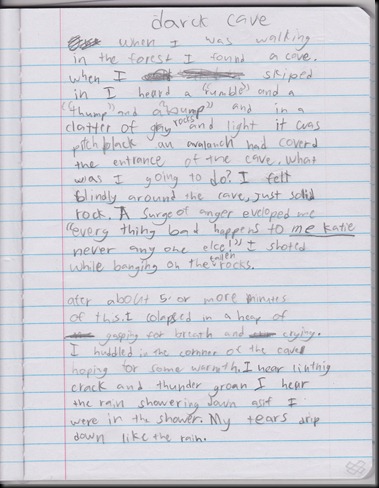 darck cave
when I was walking
in the forest I found a cave.
when I skiped
in I heard a "rumble" and a
"thump" and a "bump" and in a
clatter of gray rocks and light it was
pitch black an avalanch had coverd
the entrance of the cave. what
was I going to do? I felt
blindly around the cave, just solid
rock. A surge of anger eveloped me
"every thing bad happens to me katie
never any one else!" I shoted
while banging on the fallen rocks.
ater about 5 or more minutes
of this. I colapsed in a heap of
gasping for breath and crying.
I huddled in the cornner of the cave
hoping for some warmth. I hear lintnig
crack and thunder groan I hear
the rain showering down as if I
were in the shower. My tears drip
down like the rain.